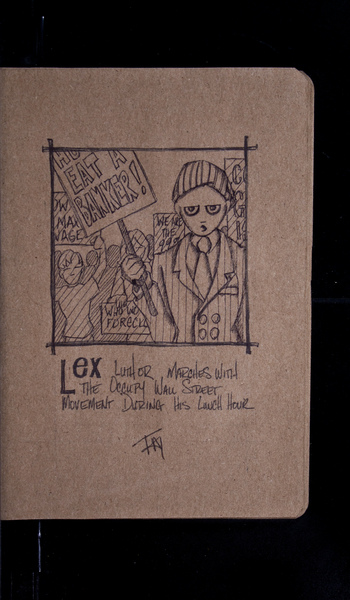 EAT A
BANKER!
MA
WAGE
WE ARE
THE
99%
FORECL
Lex LUTHOR, MARCHES WITH
THE OCCUPY WALL STREET
MOVEMENT DURING HIS LUNCH HOUR